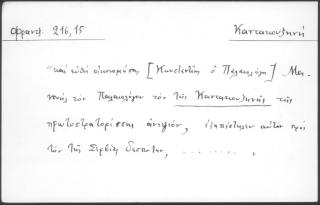 Φραντζ. 216,15 Καντακουζηνή
"καὶ εὐθὺ οἰκονομήσας [Κωνσταντῖνος ὁ Παλαιολόγος] Μα-
νουὴλ τὸν Παλαιολόγον τὸν τῆς Καντακουζηνῆς τῆς
πρωτοστρατορίσσης ἀνεψιόν, ἐξαπέστειλεν αὐτὸν πρὸς
τὸν τῆς Σερβίας δεσπότην, . . . . . . . .